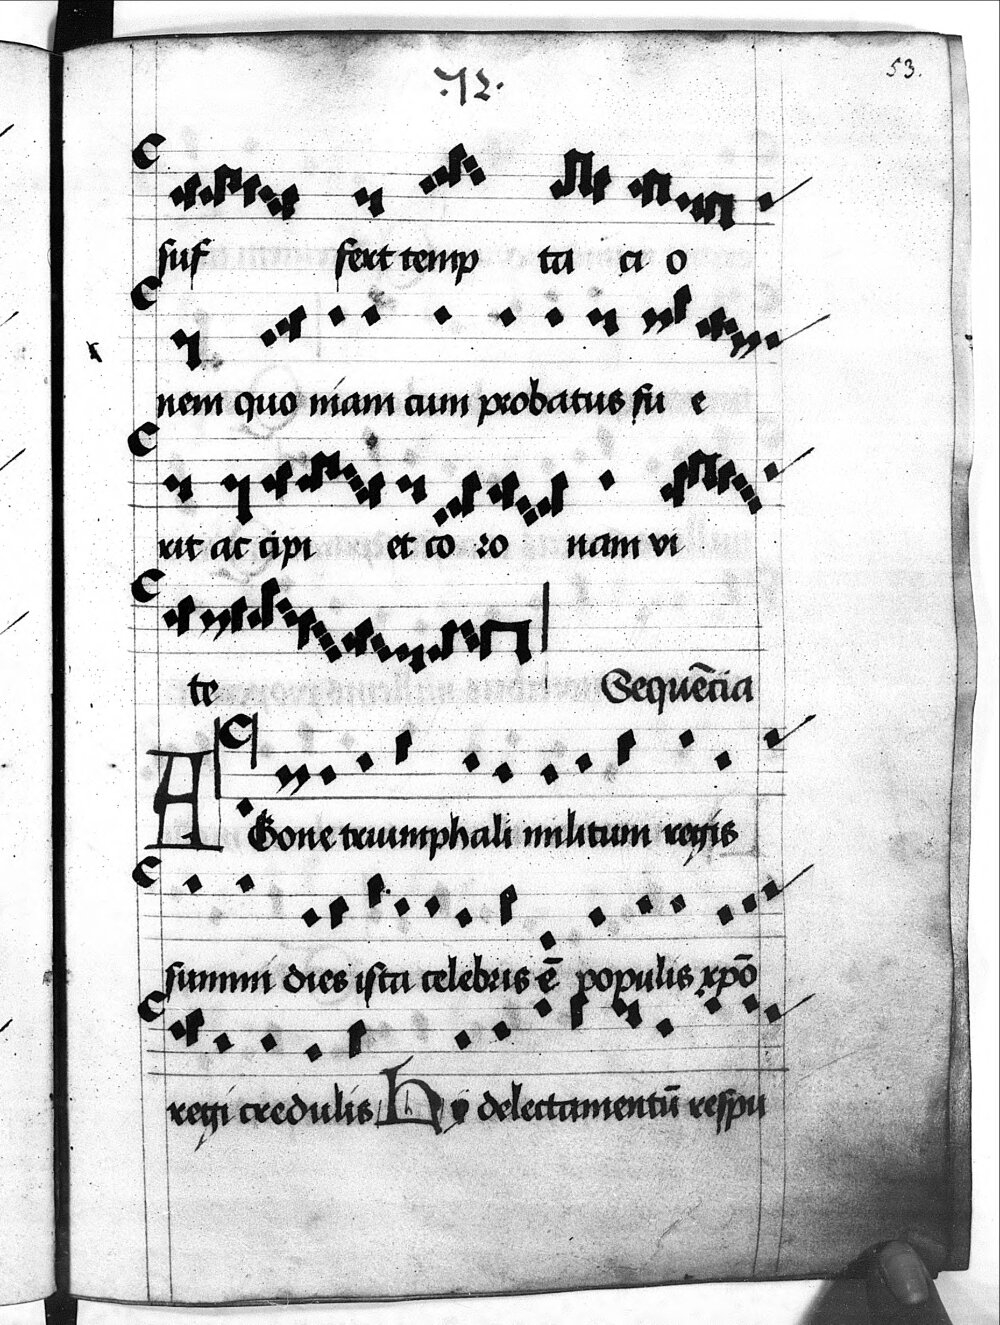 ·72·
53.
suf fert temp ta ci o
nem quo niam cum probatus fu e
rit ac cipi et co ro nam vi
te Sequēcia
AGone triumphali militum regis
summi dies ista celebris ē populis xpō
regi credulis hy delectamentū respu